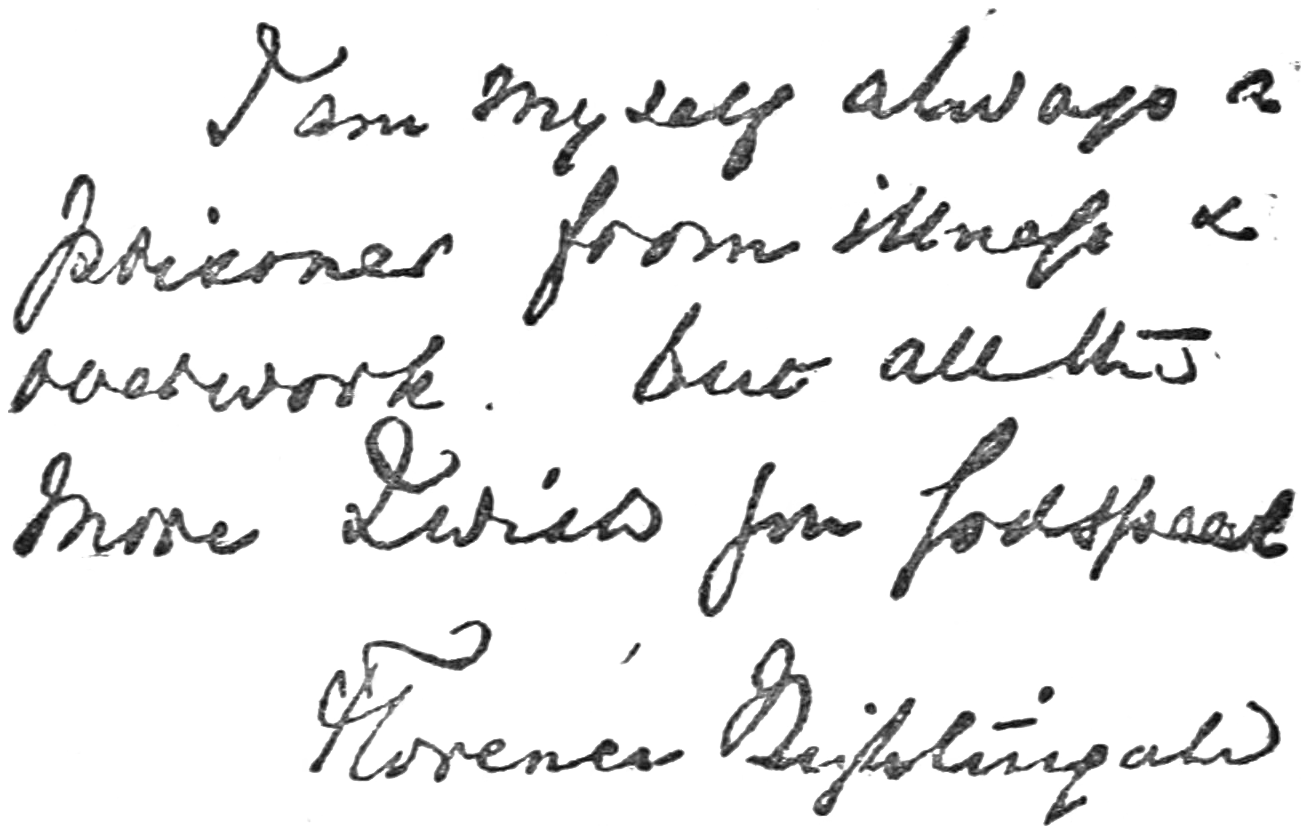 I am myself always a
prisoner from illness &
overwork. but all the
more I wish you Godspeed
Florence Nightingale